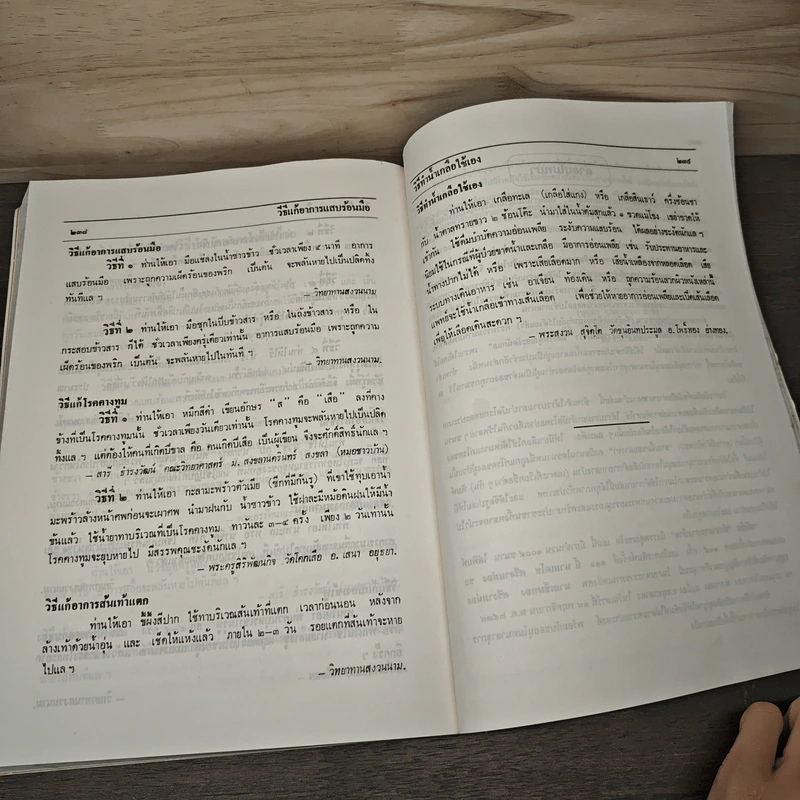 ๒๓๘ วิธีแก้อาการแสบร้อนมือ
วิธีแก้อาการแสบร้อนมือ
วิธีที่ ๑ ท่านให้เอา มือแช่ลงในน้ำซาวข้าว ชั่วเวลาเพียง ๕ นาที อาการ
แสบร้อนมือ เพราะถูกความเผ็ดร้อนของพริก เป็นต้น จะพลันหายไปเป็นปลิดทิ้ง
ทันทีแล ฯ
– วิทยาทานสงวนนาม
วิธีที่ ๒ ท่านให้เอา มือซุกในปี๊บข้าวสาร หรือ ในถังข้าวสาร หรือ ใน
กระสอบข้าวสาร ก็ได้ ชั่วเวลาเพียงครู่เดียวเท่านั้น อาการแสบร้อนมือ เพราะถูกความ
เผ็ดร้อนของพริก เป็นต้น จะพลันหายไปในทันที ฯ
– วิทยาทานสงวนนาม.
วิธีแก้โรคคางทูม
วิธีที่ ๑ ท่านให้เอา หมึกสีดำ เขียนอักษร “ส” คือ “เสือ” ลงที่คาง
ข้างที่เป็นโรคคางทูมนั้น ชั่วเวลาเพียงวันเดียวเท่านั้น โรคคางทูมจะพลันหายไปเป็นปลิด
ทิ้งแล ฯ แต่ต้องให้คนที่เกิดปีขาล คือ คนเกิดปีเสือ เป็นผู้เขียน จึงจะศักดิ์สิทธิ์นักแล ฯ
– สารี ธำรงวัฒน์ คณะวิทยาศาสตร์ ม. สงขลานครินทร์ สงขลา (หมอชาวบ้าน)
วิธีที่ ๒ ท่านให้เอา กะลามะพร้าวตัวเมีย (ซีกที่มีก้นรู) ที่เขาใช้ทุบเอาน้ำ
มะพร้าวล้างหน้าศพก่อนจะเผาศพ นำมาฝนกับ น้ำซาวข้าว ใช้ฝาละมีหม้อดินฝนให้มีน้ำ
ข้นแล้ว ใช้น้ำยาทาบริเวณที่เป็นโรคคางทูม ทาวันละ ๓–๔ ครั้ง เพียง ๒ วันเท่านั้น
โรคคางทูมจะยุบหายไป มีสรรพคุณชะงัดนักแล ฯ
– พระครูสิริพัฒนกิจ วัดโคกเสือ อ. เสนา อยุธยา.
วิธีแก้อาการส้นเท้าแตก
ท่านให้เอา ขี้ผึ้งสีปาก ใช้ทาบริเวณส้นเท้าที่แตก เวลาก่อนนอน หลังจาก
ล้างเท้าด้วยน้ำอุ่น และ เช็ดให้แห้งแล้ว ภายใน ๒–๓ วัน รอยแตกที่ส้นเท้าจะหาย
ไปแล ฯ
– วิทยาทานสงวนนาม.
วิธีทำน้ำเกลือใช้เอง ๒๓๙
วิธีทำน้ำเกลือใช้เอง
ท่านให้เอา เกลือทะเล (เกลือใส่แกง) หรือ เกลือสินเธาว์ ครึ่งช้อนชา
กับ น้ำตาลทรายขาว ๒ ช้อนโต๊ะ นำมาใส่ในน้ำต้มสุกแล้ว ๑ ขวดแม่โขง เขย่าขวดให้
เข้ากัน ใช้ดื่มบำบัดความอ่อนเพลีย ระงับความแสบร้อน ได้ผลอย่างชะงัดนักแล ฯ
นิยมใช้ในกรณีที่ผู้ป่วยขาดน้ำและเกลือ มีอาการอ่อนเพลีย เช่น รับประทานอาหารและ
น้ำทางปากไม่ได้ หรือ เพราะเสียเลือดมาก หรือ เสียน้ำเหลืองจากหลอดเลือด เสีย
ระบบทางเดินอาหาร เช่น อาเจียน ท้องเดิน หรือ ถูกความร้อนลวกผิวหนังเหล่านี้
แพทย์จะใช้น้ำเกลือเข้าทางเส้นเลือด เพื่อช่วยให้หายอาการอ่อนเพลียและเปิดเส้นเลือด
เพื่อให้เลือดเดินสะดวก ฯ
– พระสงวน สุจิตฺโต วัดขุนอินทประมูล อ. โพธิ์ทอง อ่างทอง.